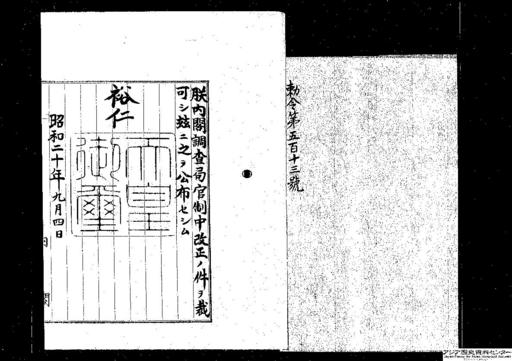 勅令第五百十三號
朕内閣調査局官制中改正ノ件ヲ裁
可シ玆ニ之ヲ公布セシム
裕仁
天皇
御璽
昭和二十年九月四日
内閣
アジア歴史資料センター